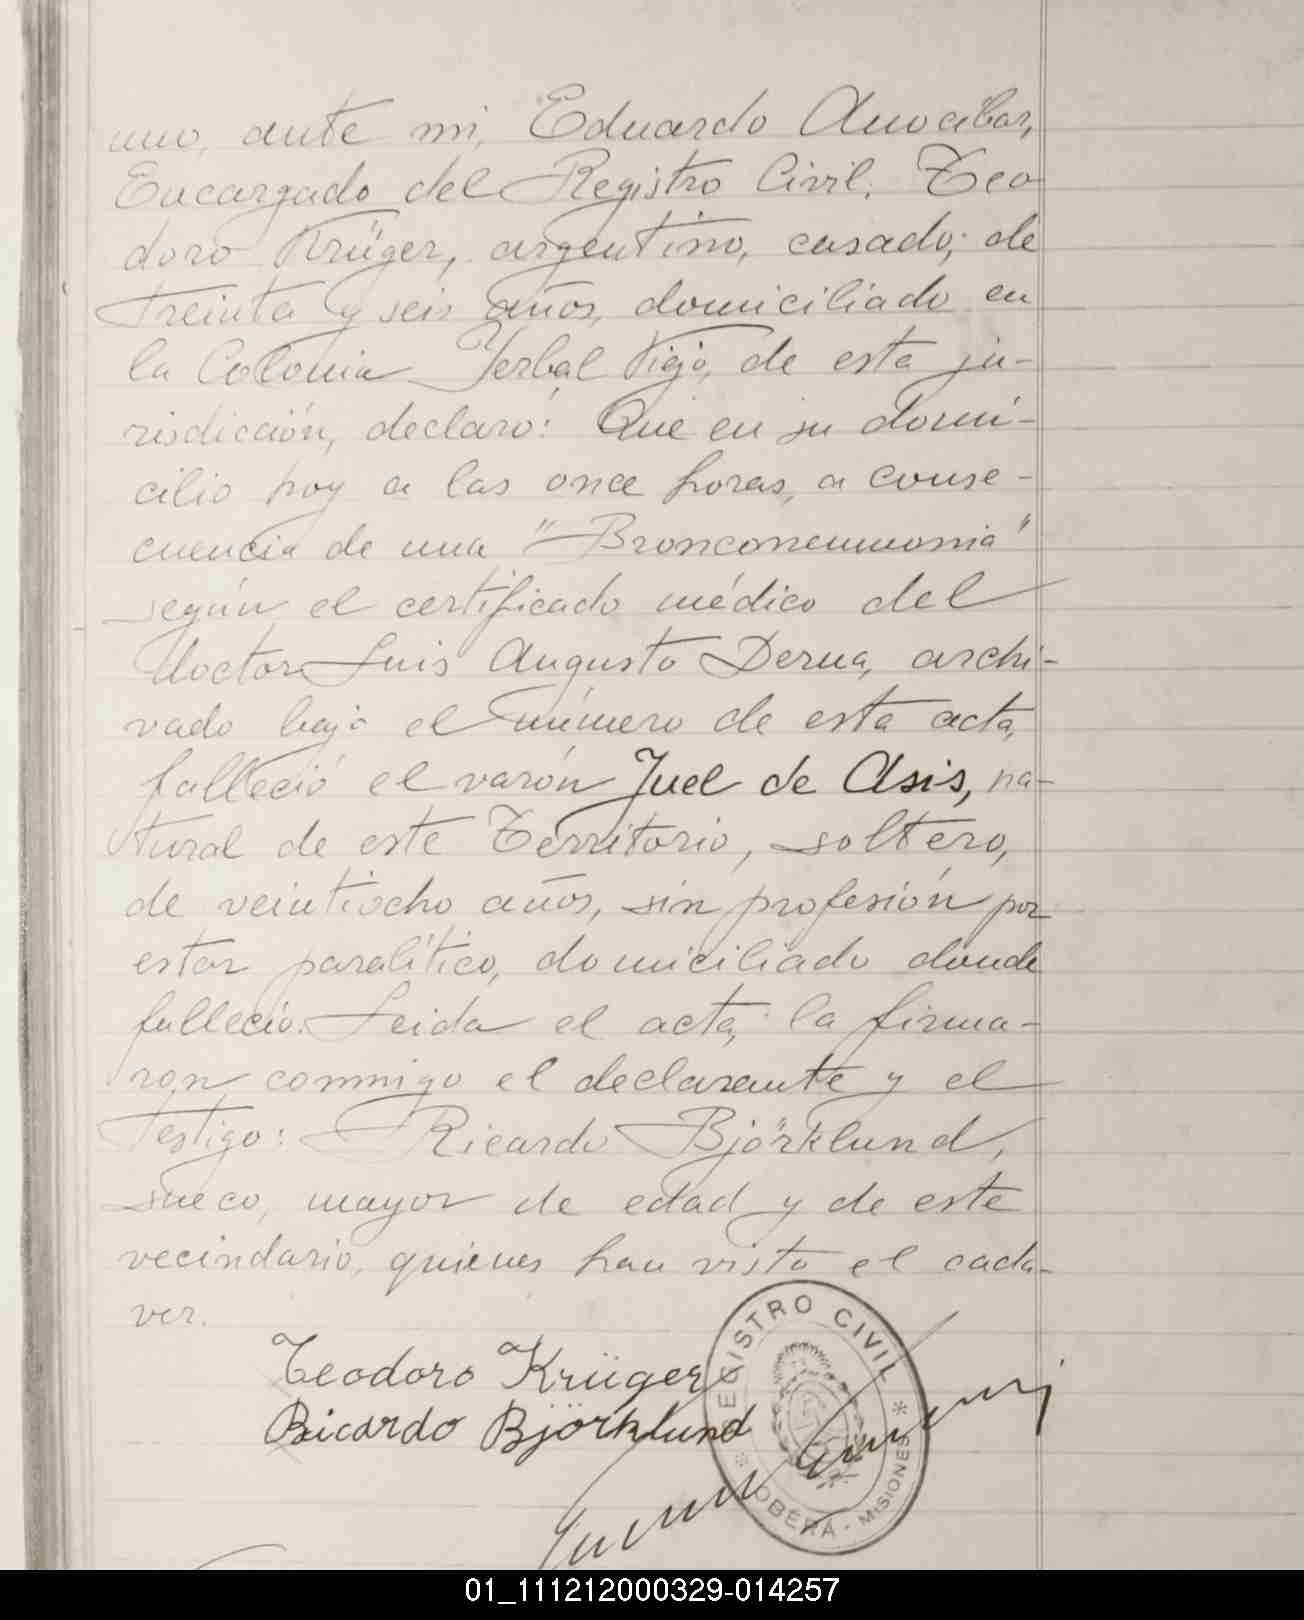 uno, ante mi, Eduardo Anocibar,
Encargado del Registro Civil. Teo
doro Krüger, argentino, casado, de
treinta y seis años, domiciliado en
la Colonia Yerbal Viejo, de esta ju-
risdicción, declaró: Que en su domi-
cilio hoy a las once horas, a conse-
cuencia de una "Bronconeumonia"
según el certificado médico del
doctor Luis Augusto Derna, archi-
vado bajo el número de esta acta,
falleció el varón Juel de Asis, na-
tural de este Territorio, soltero,
de veintiocho años, sin profesión por
estar paralítico, domiciliado donde
falleció. Leida el acta, la firma-
ron conmigo el declarante y el
testigo: Ricardo Björklund,
sueco, mayor de edad y de este
vecindario, quienes han visto el cada-
ver.
Teodoro Krüger
Ricardo Björklund
REGISTRO CIVIL
* OBERÁ - MISIONES *
01_111212000329-014257